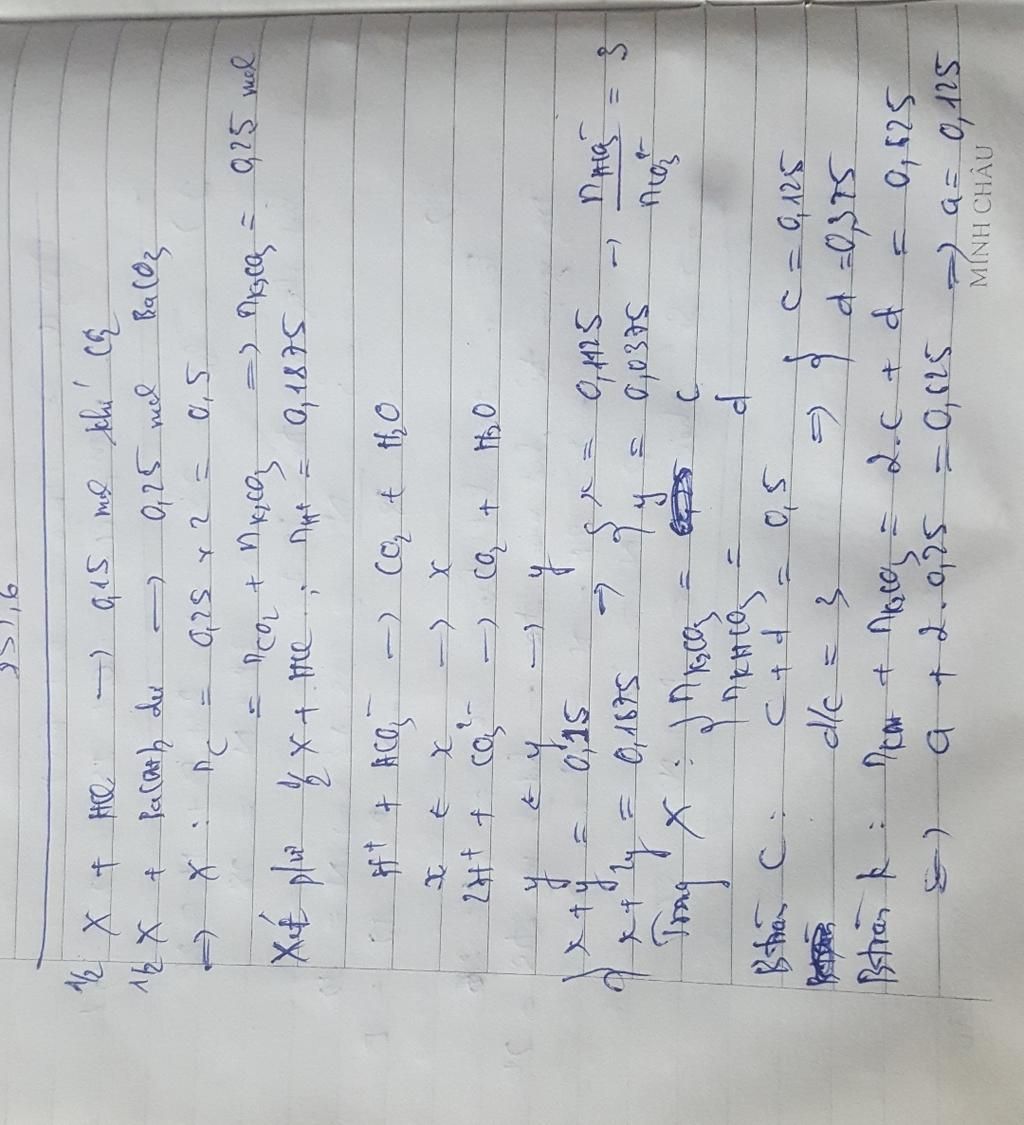 251,6
1/2 X + HCl → 0,15 mol khí CO2
1/2 X + Ba(OH)2 dư → 0,25 mol BaCO3
⇒ X : nC = 0,25 x 2 = 0,5
= nCO2 + nK2CO3 ⇒ nK2CO3 = 0,25 mol
Xét p/ư 1/2 X + HCl : nH+ = 0,1875
H+ + HCO3- → CO2 + H2O
x ← x → x
2H+ + CO3 2- → CO2 + H2O
y ← y → y
} x + y = 0,15 ⇒ { x = 0,1125 → nHCO3- / nCO3 2- = 3
x + 2y = 0,1875 } y = 0,0375
Trong X : } nK2CO3 = c
nKHCO3 = d
Btrân C : c + d = 0,5 ⇒ { c = 0,125
d/c = 3 } d = 0,375
Btrân K : nKOH + nK2CO3 = 2.c + d = 0,625
⇒ a + 2.0,25 = 0,625 ⇒ a = 0,125
MINH CHÂU